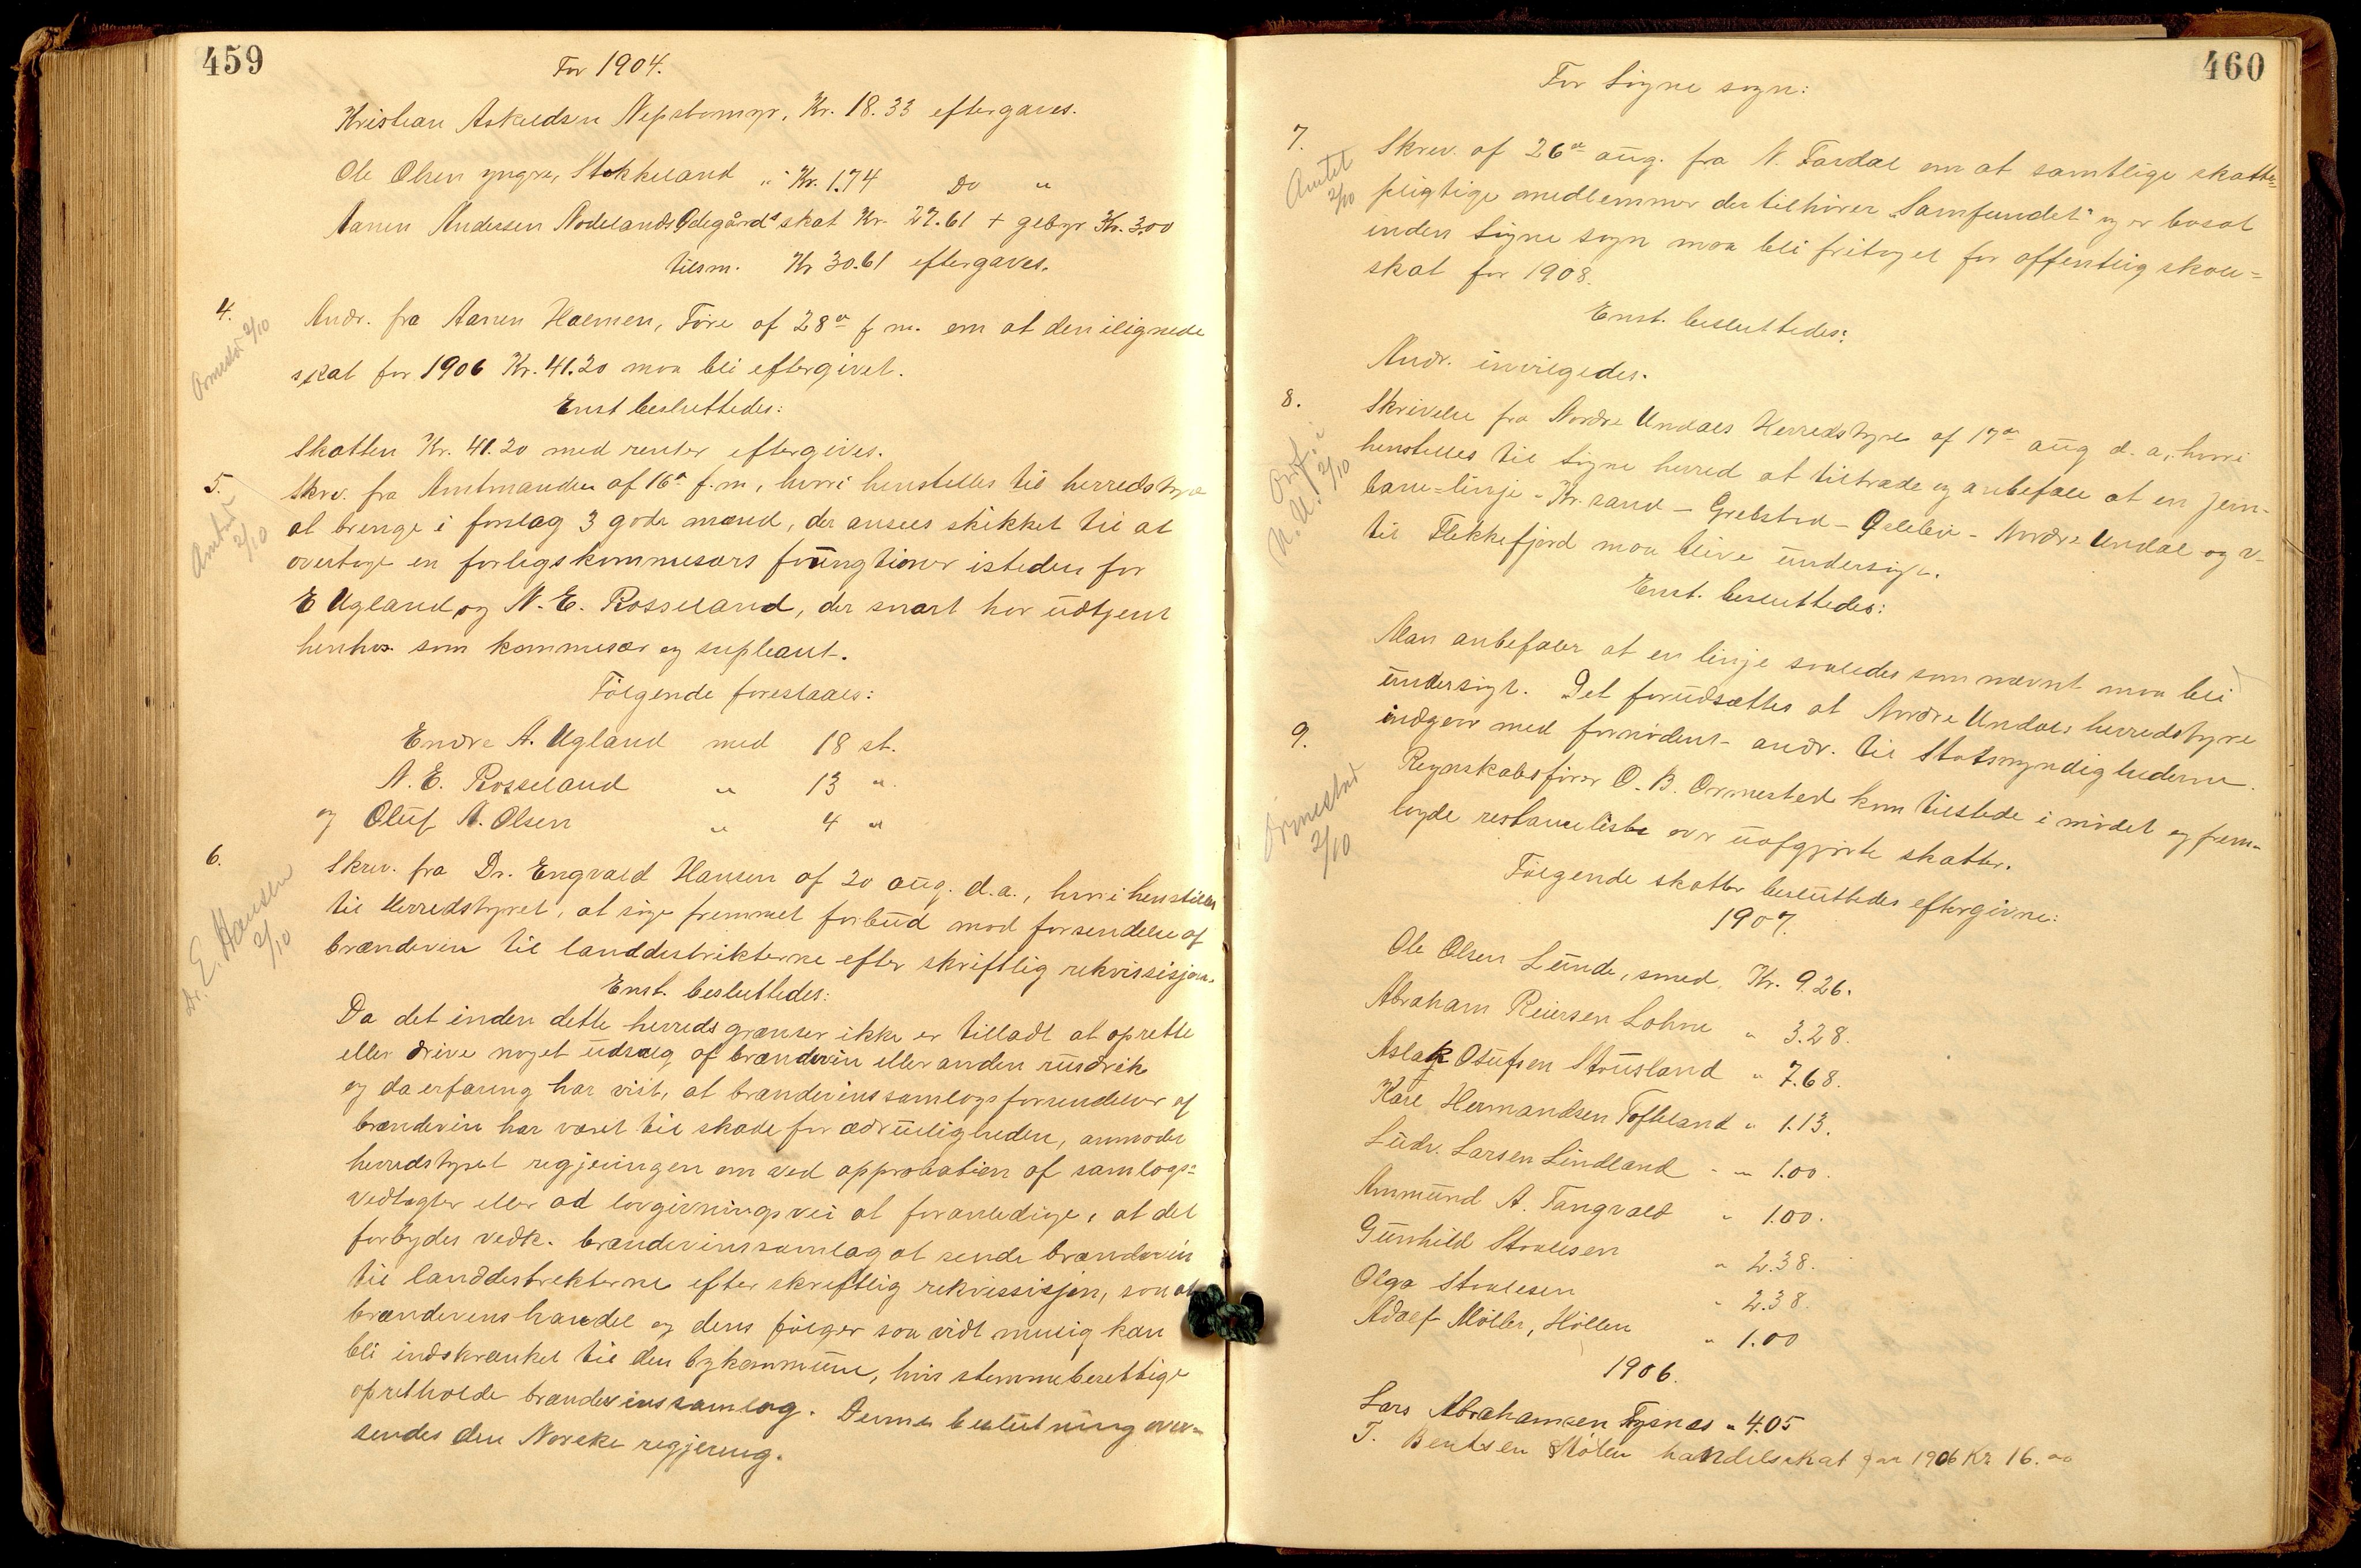 459
For 1904.
Kristian Askildsen Nepstomyr, Kr. 18.33 eftergaves.
Ole Olsen yngre, Stokkeland „ Kr. 1.74 Do „
Aanen Andersen Nodelands Ødegårds skat Kr. 27.61 + gebyr Kr. 3.00
tilsm. Kr 30.61 eftergaves.
4. Andr. fra Aanen Holmen, Töre af 28de f. m. om at den ilignede
Ormestad 2/10
skat for 1906 Kr. 41.20 maa bli eftergivet.
Enst besluttedes:
Skatten Kr. 41.20 med renter eftergives.
5. Skrv. fra Amtmanden af 16de f. m, hvori henstilles til herredstyre
Amtet 2/10
at bringe i forslag 3 gode mænd, der ansees skikket til at
overtage en forligskommisærs foungtioner isteden for
E Ugland og N. E. Rosseland, der snart har udtjent
henhv. som kommisær og supleant.
Følgende foreslaaes:
Endre A. Ugland med 18 st.
N. E. Rosseland „ 13 „
og Oluf A. Olsen „ 4 „
6. Skrv. fra Dr. Engvald Hansen af 20 aug. d. a., hvori henstilles
Dr. E. Hansen 2/10
til Herredstyret, at søge fremmet forbud mod forsendelse af
brændevin til landdistrikterne efter skriftlig rekvissisjon.
Enst. besluttedes:
Da det inden dette herreds grænser ikke er tilladt at oprette
eller drive noget udsalg af brændevin eller anden rusdrik
og da erfaring har vist, at brændevinssamlagsforsendelser af
brændevin har været til skade for ædrueligheden, anmoder
herredstyret regjeringen om ved approbation af samlags-
vedtægter eller ad lovgivningsvei at foranledige, at det
forbydes vedk. brændevinssamlag at sende brændevin
til landdistrikterne efter skriftlig rekvissisjon, saa at
brændevinshandel og dens følger saa vidt mulig kan
bli indskrænket til den bykommune, hvis stemmeberettige
opretholde brændevinssamlag. Denne beslutning over-
sendes den Norske regjering.
460
For Søgne sogn:
7. Skrv. af 26de aug. fra N. Tardal om at samtlige skatte-
Amtet 2/10
pligtige medlemmer der tilhører „Samfundet" og er bosat
inden Søgne sogn maa bli fritaget for offentlig skole-
skat for 1908.
Enst. besluttedes:
Andr. invilgedes.
8. Skrivelse fra Nordre Undals Herredstyre af 17de aug d. a, hvori
N. U. 2/10
henstilles til Søgne herred at tiltræde og anbefale at en jern-
bane-linje Kr.sand – Grebstad – Øslebø – Nordre Undal og v.
til Flekkefjord maa blive undersøgt.
Enst. besluttedes:
Man anbefaler at en linje saaledes som nævnt maa bli
undersøgt. Det forudsættes at Nordre Undals herredstyre
indgaar med fornøden andr. til Statsmyndighederne.
9. Regnskabsfører O. B. Ormestad kom tilstede i mødet og frem-
Ormestad 2/10
lagde restanceliste over uafgjorte skatter.
Følgende skatter besluttedes eftergivne:
1907.
Ole Olsen Lunde, smed, Kr. 9.26.
Abraham Reiersen Lohne „ 3.28.
Aslak Olufsen Stousland „ 7.68.
Karl Hermandsen Tofteland „ 1.13.
Ludv. Larsen Lindland „ 1.00.
Ammund A. Tangvald „ 1.00.
Gunhild Staalesen „ 2.38.
Olga Staalesen „ 2.38.
Adolf Möller, Höllen „ 1.00
1906.
Lars Abrahamsen Tysnes „ 4.05
T. Bentsen Stölen handelsskat for 1906 Kr 16.00